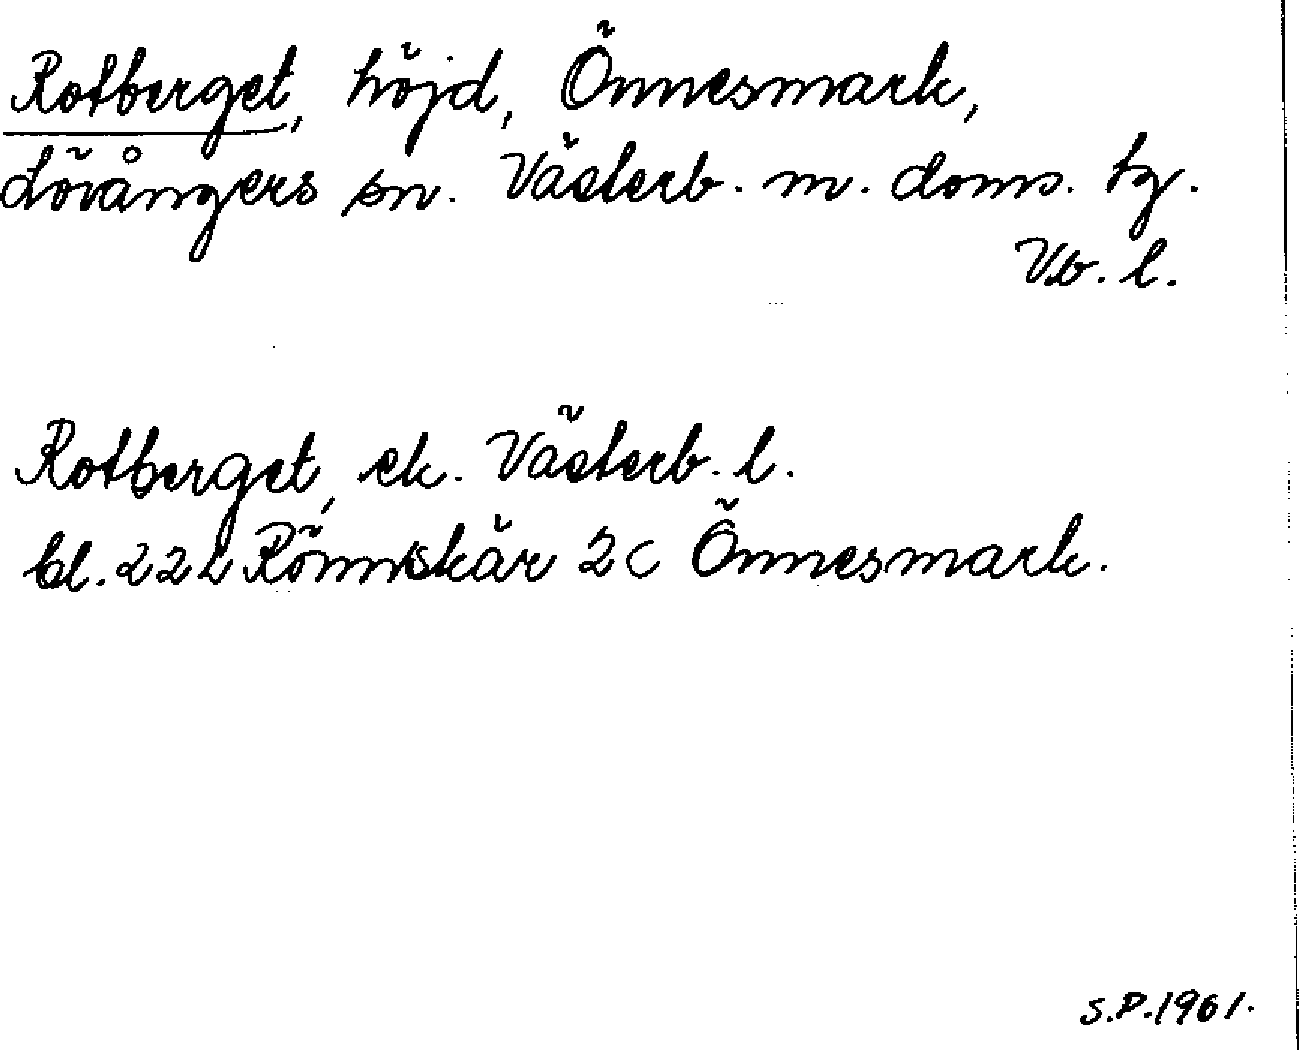 Rotberget, höjd, Önnesmark,
Lövångers sn. Västerb. m. doms. tg.
Vb. l.
Rotberget, ek. Västerb. l.
bl. 22 L Rönnskär 2c Önnesmark.
S.P. 1961.